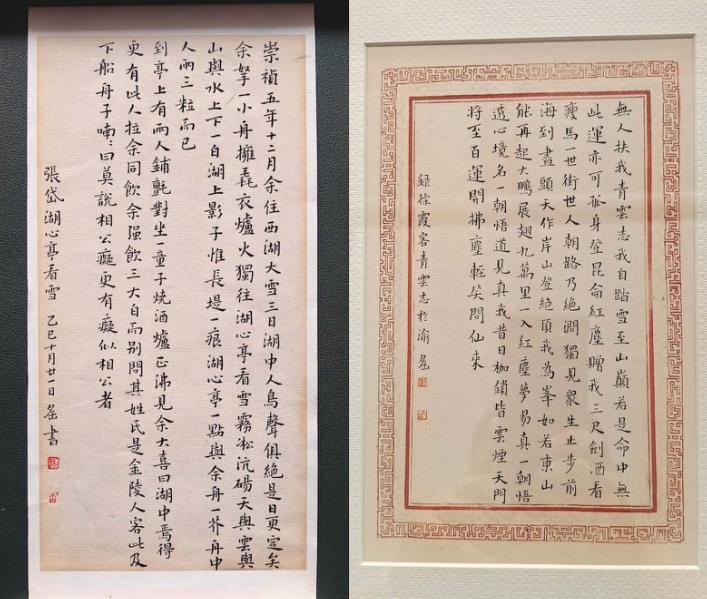 崇禎五年十二月余住西湖大雪三日湖中人鳥聲俱絕是日更定矣
余拏一小舟擁毳衣爐火獨往湖心亭看雪霧凇沆碭天與雲與
山與水上下一白湖上影子惟長堤一痕湖心亭一點與余舟一芥舟中
人兩三粒而已
到亭上有兩人鋪氈對坐一童子燒酒爐正沸見余大喜曰湖中焉得
更有此人拉余同飲余强飲三大白而別問其姓氏是金陵人客此及
下船舟子喃:曰莫說相公癡更有癡似相公者
張岱湖心亭看雪 乙巳十月廿一日 書
無人扶我青雲志我自踏雪至山巔若是命中無
此運亦可孤身登昆侖紅塵贈我三尺劍酒看
瘦馬一世街世人朝路乃絕澗獨見眾生止步前
海到盡頭天作岸山登絕頂我為峯如若東山
能再起大鵬展翅九萬里一入紅塵夢易真一朝悟
透心境名一朝悟道見真我昔日枷鎖皆雲煙天門
將至百運開拂塵輕笑問仙來
錄徐霞客青雲志於渝